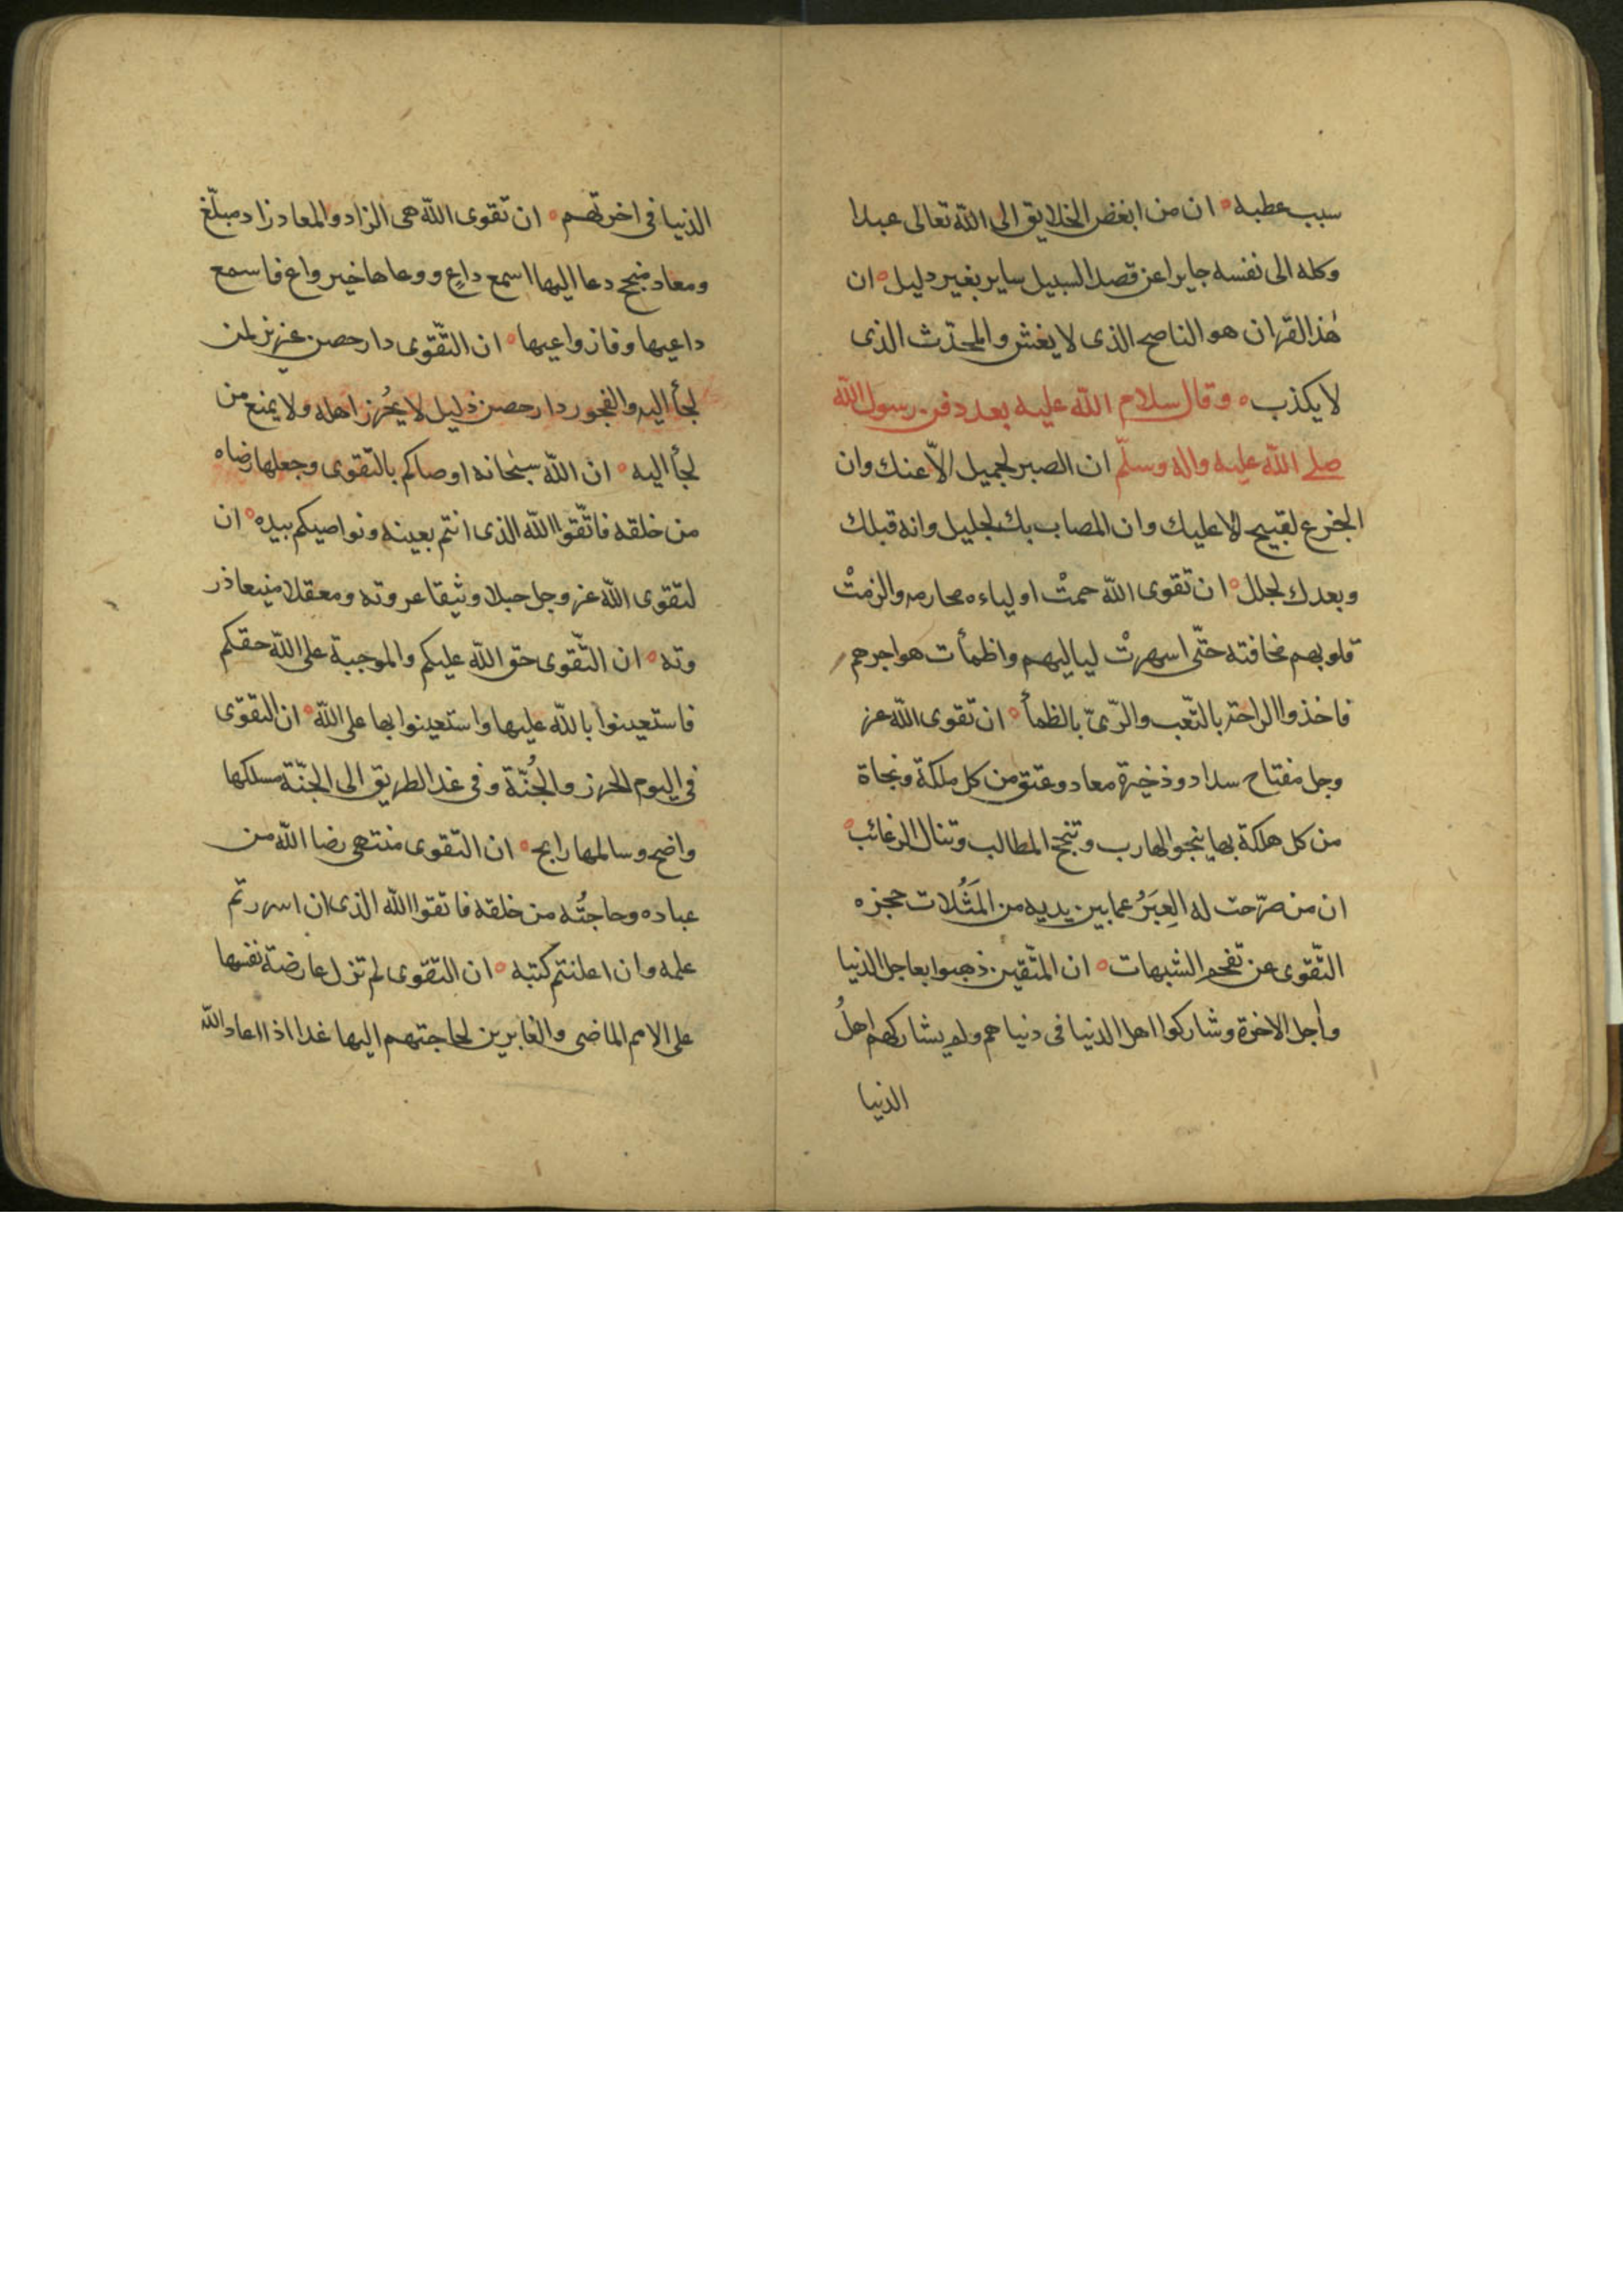 سبب عطبه ان من ابغض الخلایق الی الله تعالی عبدا
وکله الی نفسه جایرا عن قصد السبیل سایر بغیر دلیل ان
هٰذا القران هو الناصح الذی لا یغش والمحدّث الذی
لا یکذب وقال سلام الله علیه بعد دفن رسول الله
صلی الله علیه واله وسلّم ان الصبر لجمیل الّا عنك وان
الجزع لقبیح الا علیك وان المصاب بك لجلیل وانه قبلك
وبعدك لجلل ان تقوی الله حمتْ اولیاءه محارمه والزمتْ
قلوبهم مخافته حتّی اسهرتْ لیالیهم واظمأت هواجرهم
فاخذوا الراحة بالتّعب والرّیّ بالظمأ ان تقوی الله عز
وجل مفتاح سداد وذخیرة معاد وعتق من کل ملکة ونجاة
من کل هلکة بها ینجو الهارب وتنجح المطالب وتنال الرغائب
ان من صرّحت له العِبَرُ عما بین یدیه من المَثُلات حجزه
التّقوی عن تقحم الشبهات ان المتّقین ذهبوا بعاجل الدنیا
وأجل الاخرة وشارکوا اهل الدنیا فی دنیاهم ولم یشارکهم اهلُ
الدنیا
الدنیا فی اخرتهم ان تقوی الله هی الزاد والمعاد زاد مبلّغ
ومعاد منجح دعا الیها اسمع داعٍ ووعاها خیر واع فاسمع
داعیها وفاز واعیها ان التّقوی دار حصن عزیز لمن
لجأ الیه والفجور دار حصن ذلیل لا یُحرز اهله ولا یمنع من
لجأ الیه ان الله سبحانه اوصاکم بالتقوی وجعلها رضاه
من خلقه فاتّقوا الله الذی انتم بعینه ونواصیکم بیده ان
لتقوی الله عز وجل حبلا وثیقا عروته ومعقلا منیعا ذر
وته ان التّقوی حق الله علیکم والموجبة علی الله حقکم
فاستعینوا بالله علیها واستعینوا بها علی الله ان التقوّی
فی الیوم الحرز والجُنّة وفی غد الطریق الی الجنّة مسلکها
واضح وسالمها رابح ان التقوی منتهی رضا الله من
عباده وحاجتُه من خلقه فاتقوا الله الذی ان اسررتم
علمه وان اعلنتم کتبه ان التقوی لم تزل عارضة نفسها
علی الامم الماضی والغابرین لحاجتهم الیها غدا اذا اعاد الله